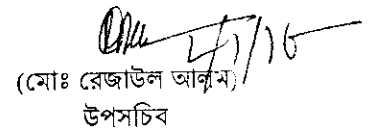 (মোঃ রেজাউল আলম)
উপসচিব